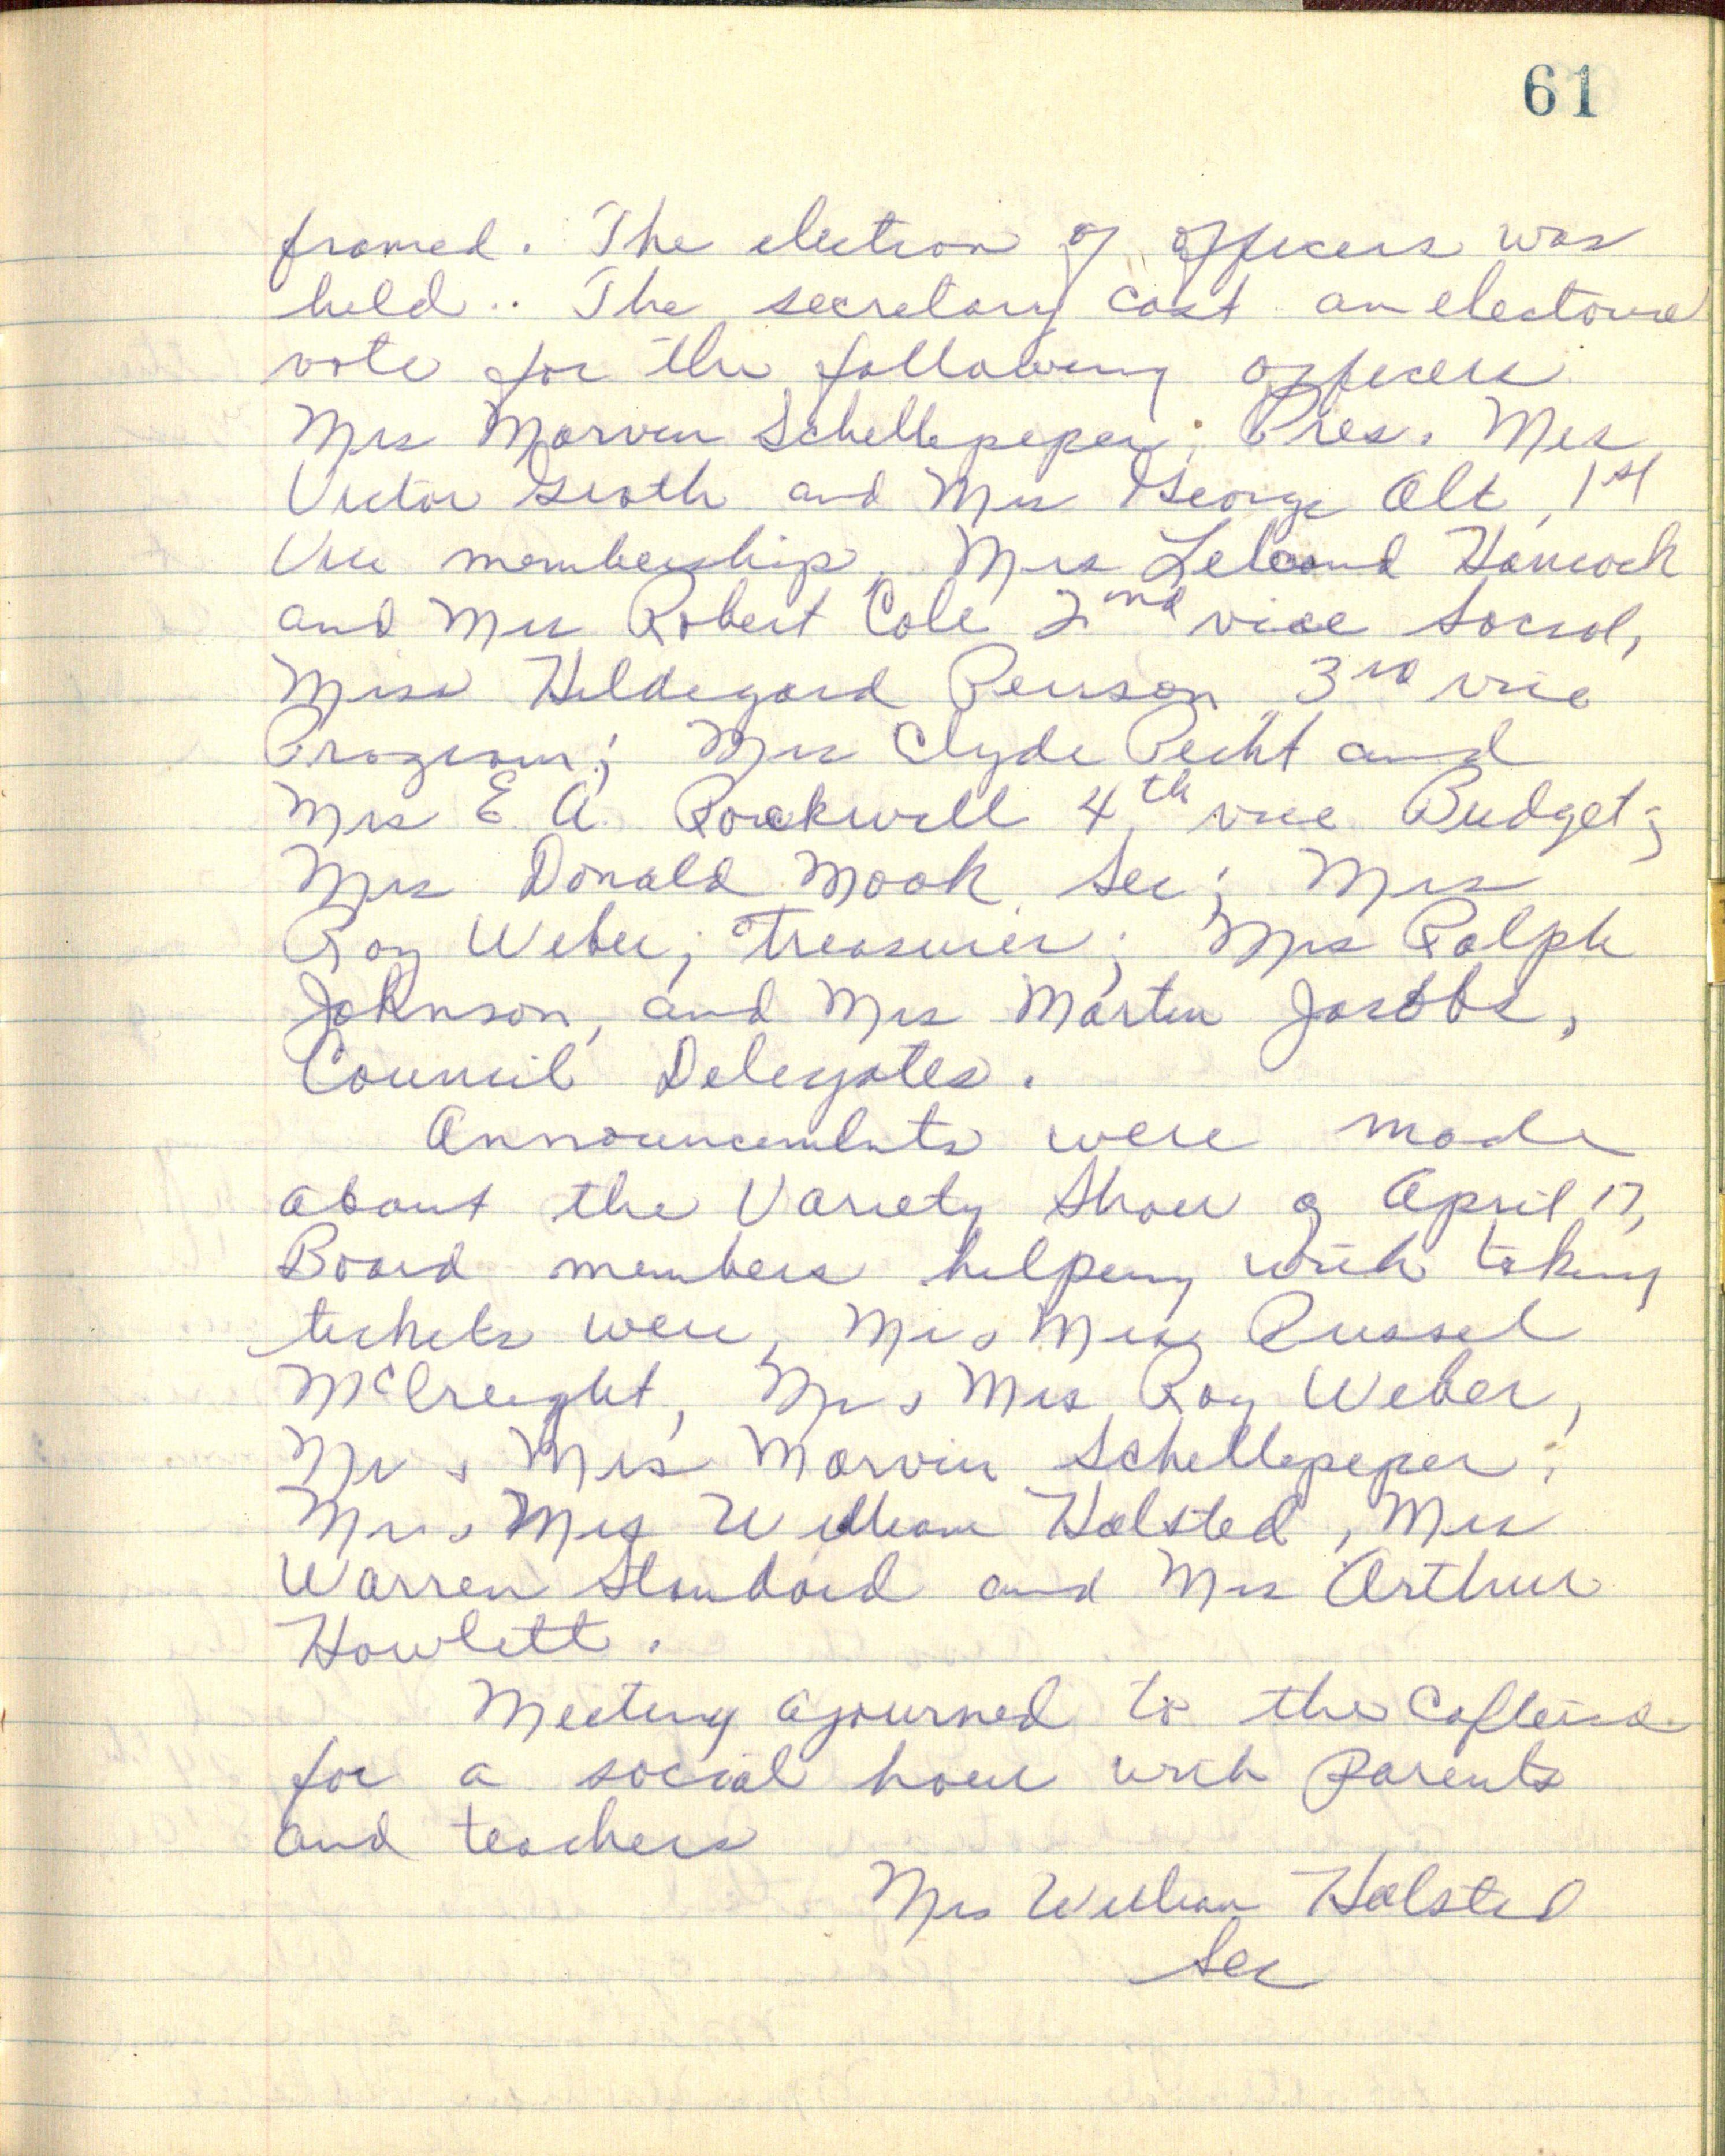 61
framed. The election of officers was
held.. The secretary cast an electoral
vote for the following officers
Mrs Marvin Schellepeper; Pres. Mrs
Victor Groth and Mrs George Alt, 1st
Vice membership, Mrs Leland Hancock
and Mrs Robert Cole 2nd vice Social,
Miss Hildegard Person 3rd vice
Program; Mrs Clyde Pecht and
Mrs E A. Rockwell 4th vice Budget;
Mrs Donald Mook Sec; Mrs
Roy Weber; Treasurer; Mrs Ralph
Johnson, and Mrs Martin Jacobs,
Council Delegates.
Announcements were made
about the Variety Show of April 17,
Board members helping with taking
tickets were, Mr & Mrs Russel
McCreight, Mr & Mrs Roy Weber,
Mr & Mrs Marvin Schellepeper,
Mr & Mrs William Halsted, Mrs
Warren Standard and Mrs Arthur
Howlett.
Meeting ajourned to the Cafteria
for a social hour with Parents
and teachers
Mrs William Halsted
Sec